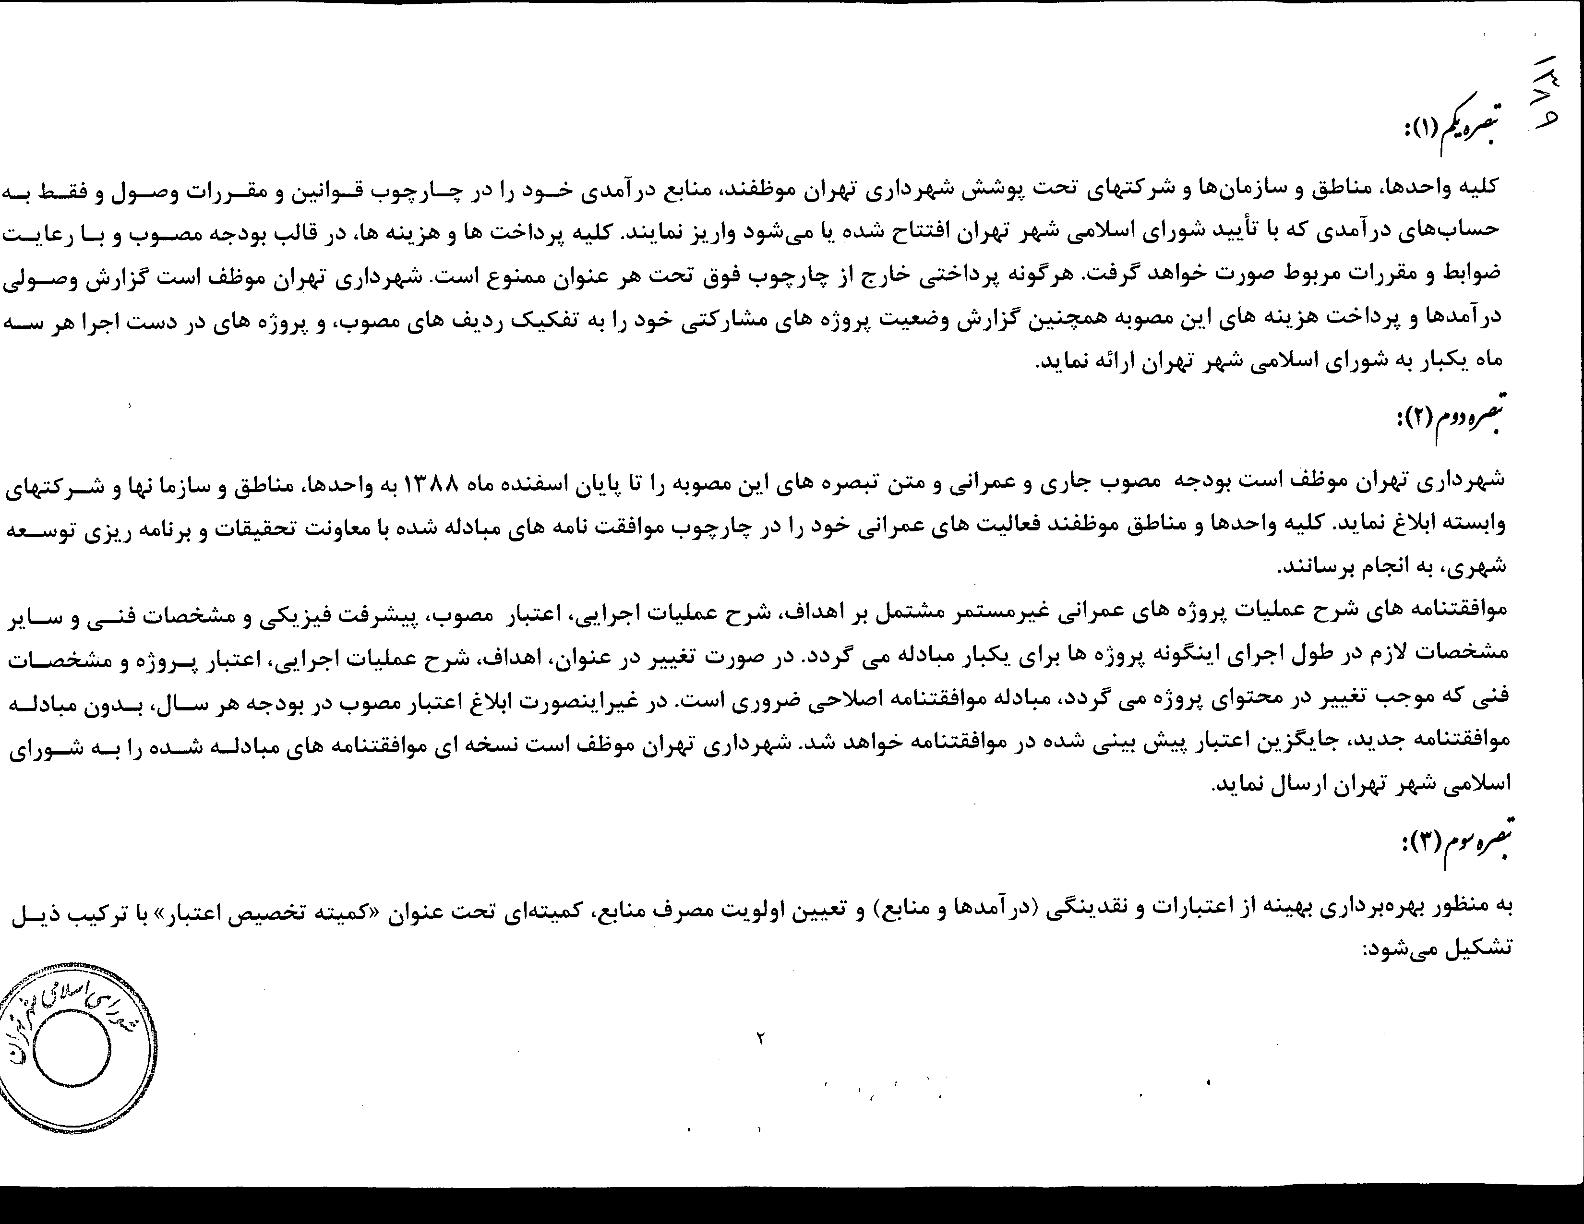 ۱۳۸۹
تبصره یکم (۱):
کلیه واحدها، مناطق و سازمان‌ها و شرکتهای تحت پوشش شهرداری تهران موظفند، منابع درآمدی خود را در چارچوب قوانین و مقررات وصول و فقط به
حساب‌های درآمدی که با تأیید شورای اسلامی شهر تهران افتتاح شده یا می‌شود واریز نمایند. کلیه پرداخت ها و هزینه ها، در قالب بودجه مصوب و با رعایت
ضوابط و مقررات مربوط صورت خواهد گرفت. هرگونه پرداختی خارج از چارچوب فوق تحت هر عنوان ممنوع است. شهرداری تهران موظف است گزارش وصولی
درآمدها و پرداخت هزینه های این مصوبه همچنین گزارش وضعیت پروژه های مشارکتی خود را به تفکیک ردیف های مصوب، و پروژه های در دست اجرا هر سه
ماه یکبار به شورای اسلامی شهر تهران ارائه نماید.
تبصره دوم (۲):
شهرداری تهران موظف است بودجه مصوب جاری و عمرانی و متن تبصره های این مصوبه را تا پایان اسفنده ماه ۱۳۸۸ به واحدها، مناطق و سازما نها و شرکتهای
وابسته ابلاغ نماید. کلیه واحدها و مناطق موظفند فعالیت های عمرانی خود را در چارچوب موافقت نامه های مبادله شده با معاونت تحقیقات و برنامه ریزی توسعه
شهری، به انجام برسانند.
موافقتنامه های شرح عملیات پروژه های عمرانی غیرمستمر مشتمل بر اهداف، شرح عملیات اجرایی، اعتبار مصوب، پیشرفت فیزیکی و مشخصات فنی و سایر
مشخصات لازم در طول اجرای اینگونه پروژه ها برای یکبار مبادله می گردد. در صورت تغییر در عنوان، اهداف، شرح عملیات اجرایی، اعتبار پروژه و مشخصات
فنی که موجب تغییر در محتوای پروژه می گردد، مبادله موافقتنامه اصلاحی ضروری است. در غیراینصورت ابلاغ اعتبار مصوب در بودجه هر سال، بدون مبادله
موافقتنامه جدید، جایگزین اعتبار پیش بینی شده در موافقتنامه خواهد شد. شهرداری تهران موظف است نسخه ای موافقتنامه های مبادله شده را به شورای
اسلامی شهر تهران ارسال نماید.
تبصره سوم (۳):
به منظور بهره‌برداری بهینه از اعتبارات و نقدینگی (درآمدها و منابع) و تعیین اولویت مصرف منابع، کمیته‌ای تحت عنوان «کمیته تخصیص اعتبار» با ترکیب ذیل
تشکیل می‌شود:
شورای اسلامی شهر تهران
۲